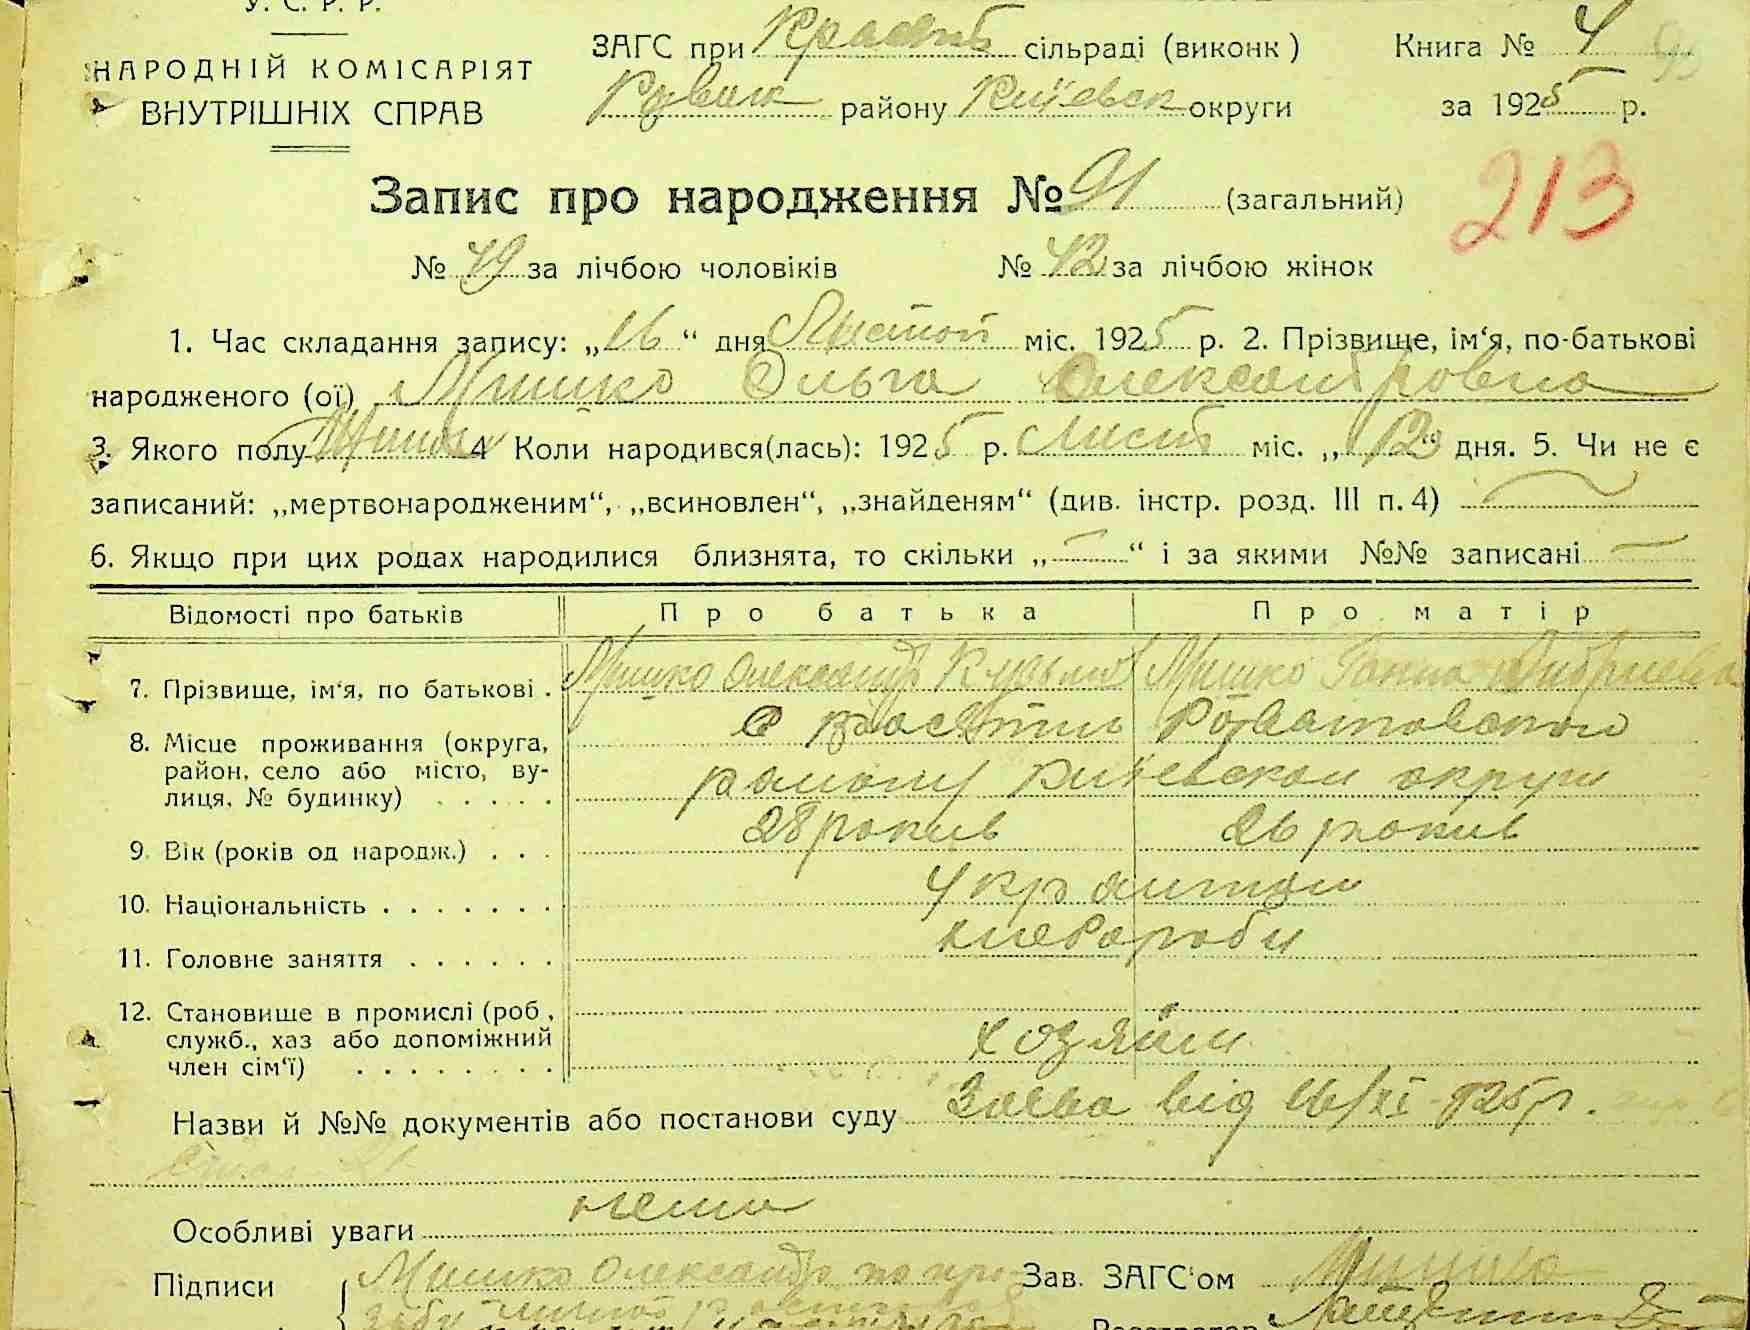 У. С. Р. Р.
НАРОДНІЙ КОМІСАРІЯТ
ВНУТРІШНІХ СПРАВ
ЗАГС при Красят сільраді (виконк)
району Київськ округи
Книга № 4
за 1925 р.
Запис про народження № 91 (загальний)
213
№ 49 за лічбою чоловіків № 42 за лічбою жінок
1. Час складання запису: „16“ дня Листоп міс. 1925 р. 2. Прізвище, ім'я, по-батькові
народженого (ої) Мишко Ольга Олександровна
3. Якого полу 4 Коли народився(лась): 1925 р. Лист міс. „12“ дня. 5. Чи не є
записаний: „мертвонародженим“, „всиновлен“, „знайденям“ (див. інстр. розд. III п. 4)
6. Якщо при цих родах народилися близнята, то скільки „—“ і за якими №№ записані —
Відомості про батьків Про батька Про матір
7. Прізвище, ім'я, по батькові . Мишко Олександр Кузьмов Мишко Ганна
8. Місце проживання (округа, район, село або місто, вулиця, № будинку) . . . . . району Киівскои округи
9. Вік (років од народж.) . . . 28 рокив 26 рокив
10. Національність . . . . . . .
11. Головне заняття . . . . . . хлебороби
12. Становище в промислі (роб, служб., хаз або допоміжний член сім'ї) . . . . . . . . хозяіни
Назви й №№ документів або постанови суду Заява від 16/XI-925 р.
Особливі уваги нема
Підписи Мишко Олександр Зав. ЗАГС'ом
Реєстратор